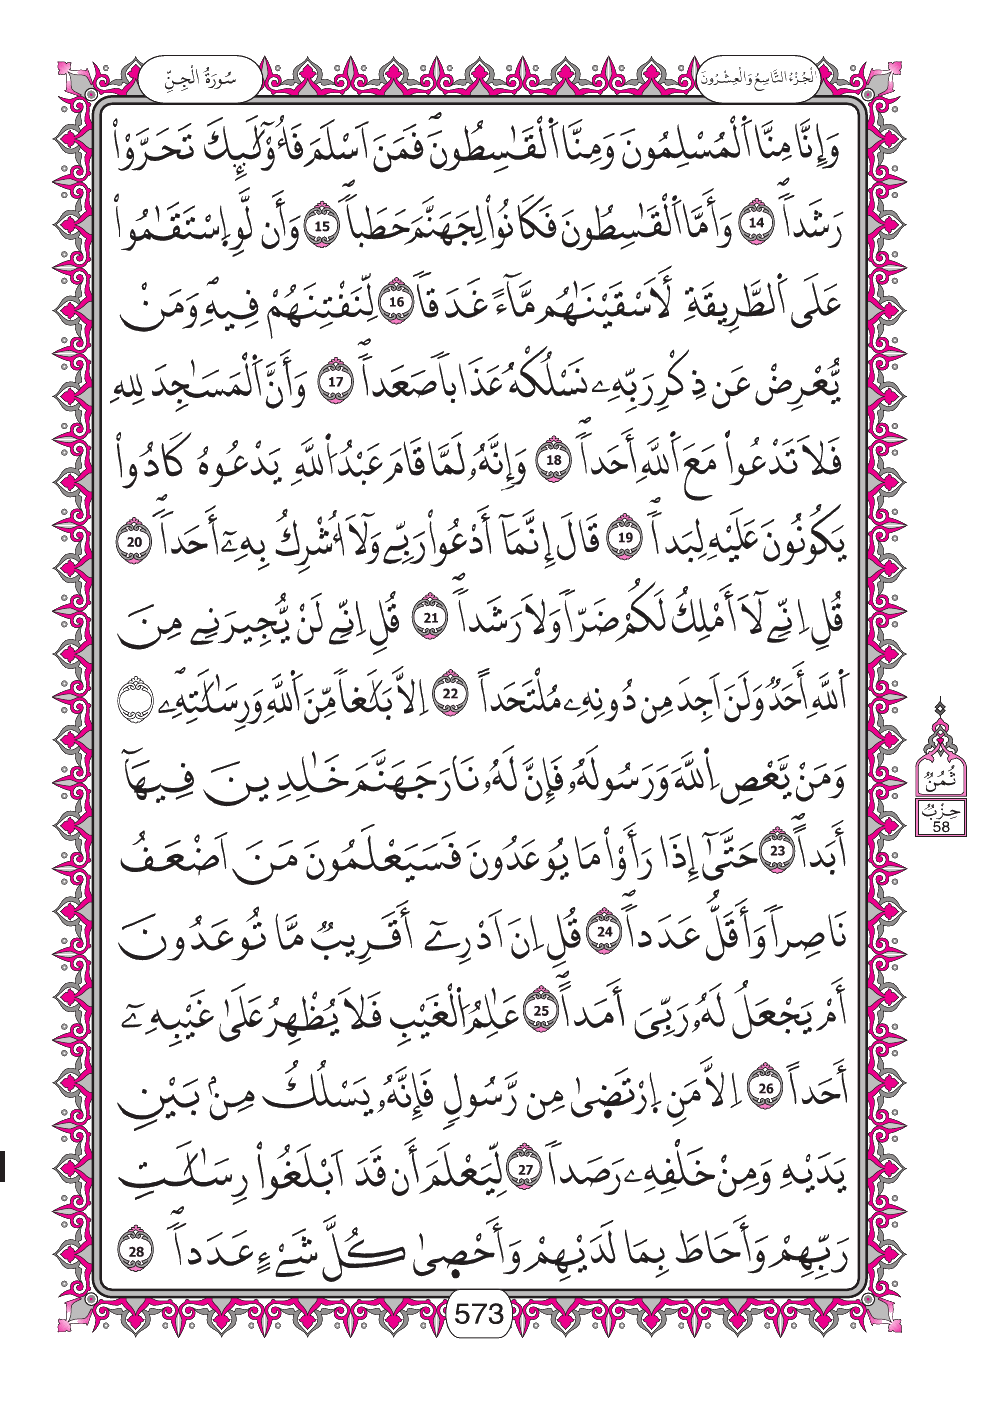 سُورَةُ الْجِنِّ
اَلْجُزْءُ التَّاسِعُ وَالْعِشْرُونَ
وَإِنَّا مِنَّا اَ۬لْمُسْلِمُونَ وَمِنَّا اَ۬لْقَٰسِطُونَۖ فَمَنَ اَسْلَمَ فَأُوْلَٰٓئِكَ تَحَرَّوْاْ
رَشَداٗۖ 14 وَأَمَّا اَ۬لْقَٰسِطُونَ فَكَانُواْ لِجَهَنَّمَ حَطَباٗۖ 15 وَأَن لَّوِ اِ۪سْتَقَٰمُواْ
عَلَى اَ۬لطَّرِيقَةِ لَأَسْقَيْنَٰهُم مَّآءً غَدَقاٗ 16 لِّنَفْتِنَهُمْ فِيهِۖ وَمَنْ
يُّعْرِضْ عَن ذِكْرِ رَبِّهِۦ نَسْلُكْهُ عَذَاباٗ صَعَداٗۖ 17 وَأَنَّ اَ۬لْمَسَٰجِدَ لِلهِ
فَلَا تَدْعُواْ مَعَ اَ۬للَّهِ أَحَداٗۖ 18 وَإِنَّهُۥ لَمَّا قَامَ عَبْدُ اُ۬للَّهِ يَدْعُوهُ كَادُواْ
يَكُونُونَ عَلَيْهِ لِبَداٗۖ 19 قَالَ إِنَّمَآ أَدْعُواْ رَبِّے وَلَآ أُشْرِكُ بِهِۦٓ أَحَداٗۖ 20
قُلِ اِنِّے لَآ أَمْلِكُ لَكُمْ ضَرّاٗ وَلَا رَشَداٗۖ 21 قُلِ اِنِّے لَنْ يُّجِيرَنِے مِنَ
اَ۬للَّهِ أَحَدٞ وَلَنَ اَجِدَ مِن دُونِهِۦ مُلْتَحَداً 22 اِلَّا بَلَٰغاٗ مِّنَ اَ۬للَّهِ وَرِسَٰلَٰتِهِۦۖ
وَمَنْ يَّعْصِ اِ۬للَّهَ وَرَسُولَهُۥ فَإِنَّ لَهُۥ نَارَ جَهَنَّمَ خَٰلِدِينَ فِيهَآ
أَبَداًۖ 23 حَتَّىٰٓ إِذَا رَأَوْاْ مَا يُوعَدُونَ فَسَيَعْلَمُونَ مَنَ اَضْعَفُ
نَاصِراٗ وَأَقَلُّ عَدَداٗۖ 24 قُلِ اِنَ اَدْرِےٓ أَقَرِيبٞ مَّا تُوعَدُونَ
أَمْ يَجْعَلُ لَهُۥ رَبِّيَ أَمَداًۖ 25 عَٰلِمُ اُ۬لْغَيْبِ فَلَا يُظْهِرُ عَلَىٰ غَيْبِهِۦٓ
أَحَداً 26 اِلَّا مَنِ اِ۪رْتَضَىٰ مِن رَّسُولٖ فَإِنَّهُۥ يَسْلُكُ مِنۢ بَيْنِ
يَدَيْهِ وَمِنْ خَلْفِهِۦ رَصَداٗ 27 لِّيَعْلَمَ أَن قَدَ اَبْلَغُواْ رِسَٰلَٰتِ
رَبِّهِمْ وَأَحَاطَ بِمَا لَدَيْهِمْ وَأَحْصَىٰ كُلَّ شَےْءٍ عَدَداٗۖ 28
ثُمُنٌ
حِزْبُ
58
573